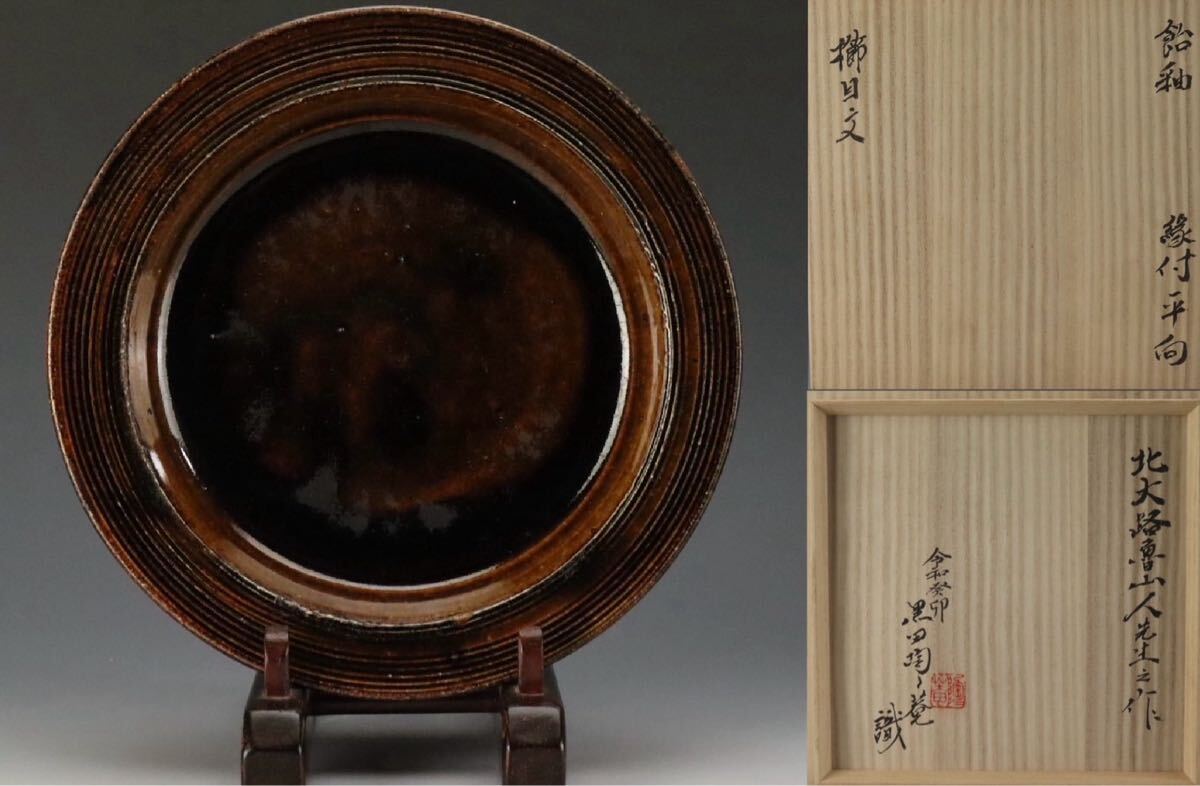 飴釉 緣付平向
櫛目文
北大路魯山人先生之作
令和癸卯
黒田陶々菴
識